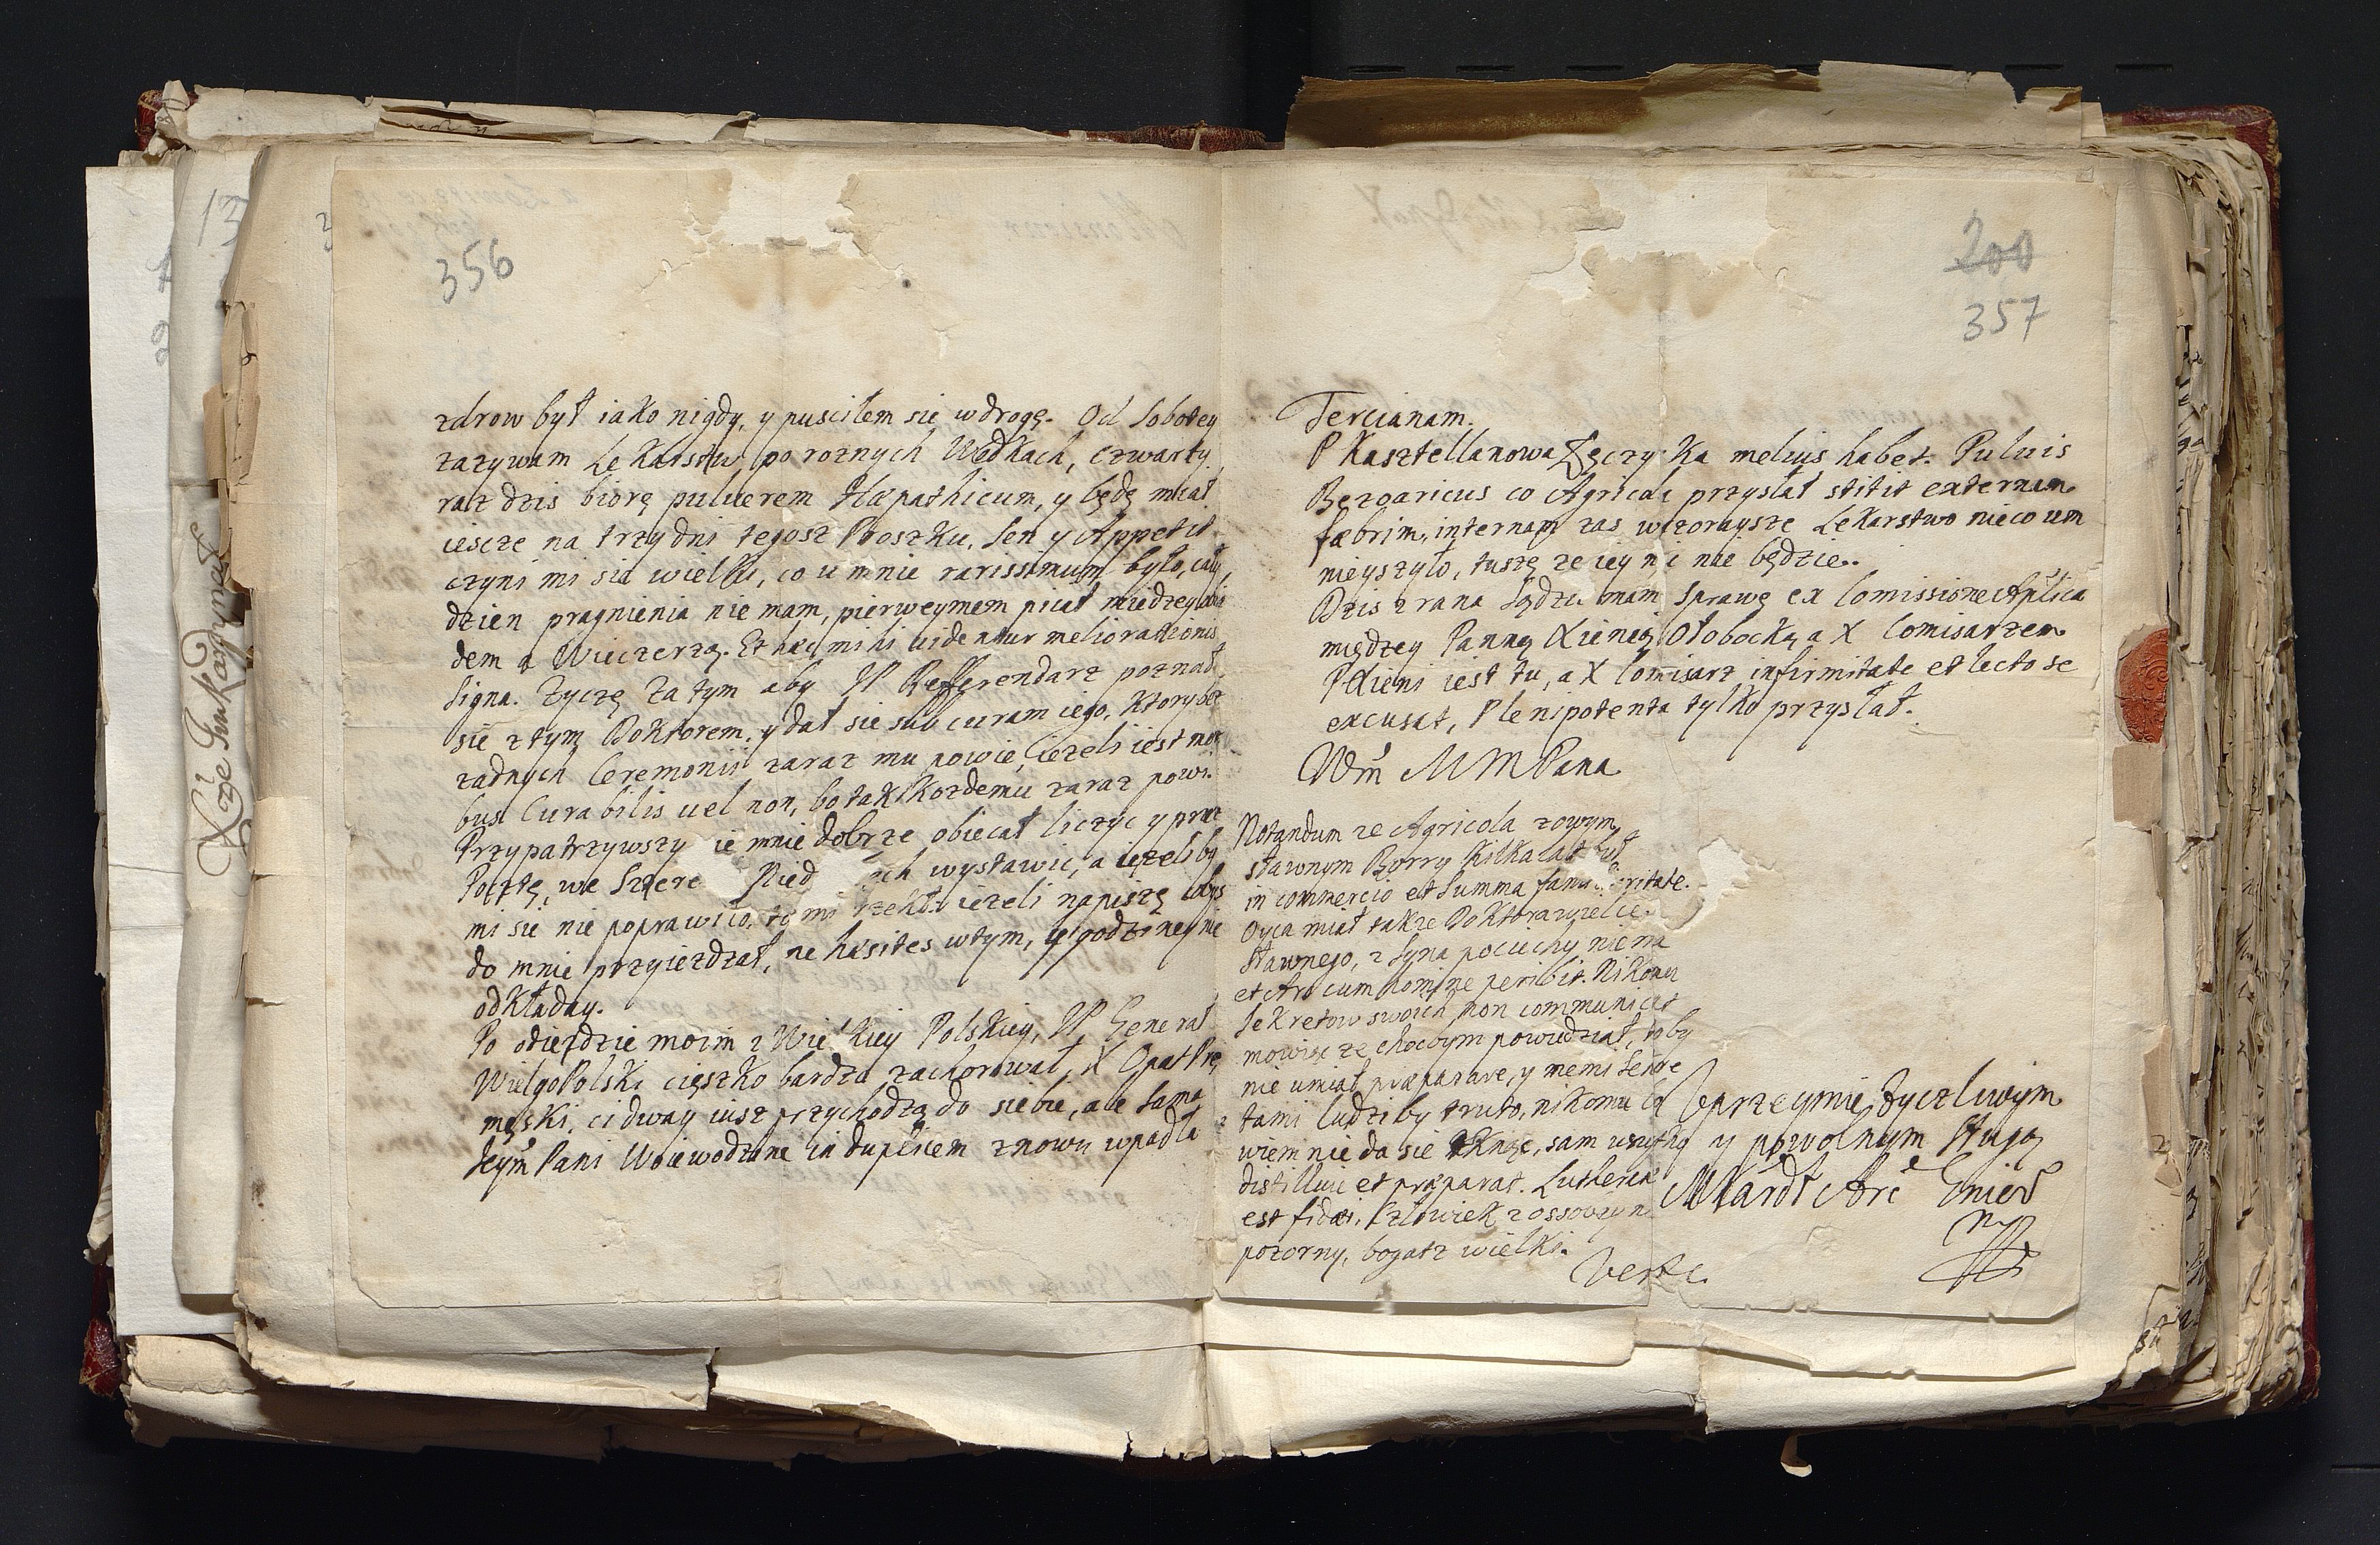 356
zdrow był iako nigdy, y puscilem się w drogę. Od Sobotey
zazywam Lekarstw po roznych Wodkach, czwarty
raz dzis biorę puluerem Hæpathicum, y będę miał
iescze na trzy dni tegosz Proszku. Sen y Appetit
czyni mi sia wielki, co u mnie rarissimum było, cały
dzien pragnienia nie mam, pierweymem piial miedzy
dem a Wieczerzą. Et hæc mihi uidentur meliorationis
Signa. Zyczę Zatym aby JP Refferendarz poznał
się z tym Doktorem, y dał sie sub curam iego, Ktory bez
zadnych Ceremonii zaraz mu powie, iezeli iest
bus Curabilis uel non, bo tak kozdemu zaraz powi.
Przypatrzywszy ie mnie dobrze obiecał liczyc y przez
Pocztę, we Nied wystawic, a iezeliby
mi sie nie poprawiło, to mi rzekł iezeli napiszę abys
do mnie przyiezdzał, ne hæsites w tym, y godziney nie
odkładay.
Po odiezdzie moim z Wielkiey Polskiey, JP General
WielgoPolski cięszko bardzo zachorował, X Opat
męski, ci dway iusz przychodzą do siebie, ale Sama
Jeym Pani Woiewodzina in duplicem znowu wpadła
200
357
Tercianam.
P Kasztellanowa Łęczycka melius habet. Puluis
Bezoaricus co Agricola przysłał stitit externam
fæbrim, internam zas wczoraysze Lekarstwo nieco um
nieyszyło, tuszę ze iey nic nie będzie.
Dzis z rana Sądzu mam Sprawę ex Comissione Aplica
między Panną Xienią Ołobocką a X Comisarzem
P Xieni iest tu, a X Comisarz infirmitate et lecto se
excusat, Plenipotenta tylko przysłał.
Wm MMPana
Notandum ze Agricola z owym
sławnym Borry kilka lat był
in commercio et Summa familiaritate.
Oyca miał takze Doktora wielce
sławnego, z Syna pociechy nie ma
et Ars cum homine peribit. Nikomu
Sekretow swoich non communicat
mowiąc ze chocbym powiedział, toby
nie umiał præparare, y memi Sekre
tami ludzi by truto, nikomu
wiem nie da się tknąc, sam wszytko
distilluie et præparat. Lutheranæ
est fidei, Człowiek z ossoby
pozorny, bogacz wielki.
Verte.
Uprzeymie Zyczliwym
y powolnym Sługą
MKardł Arc Gniez
Xze JmKardynał